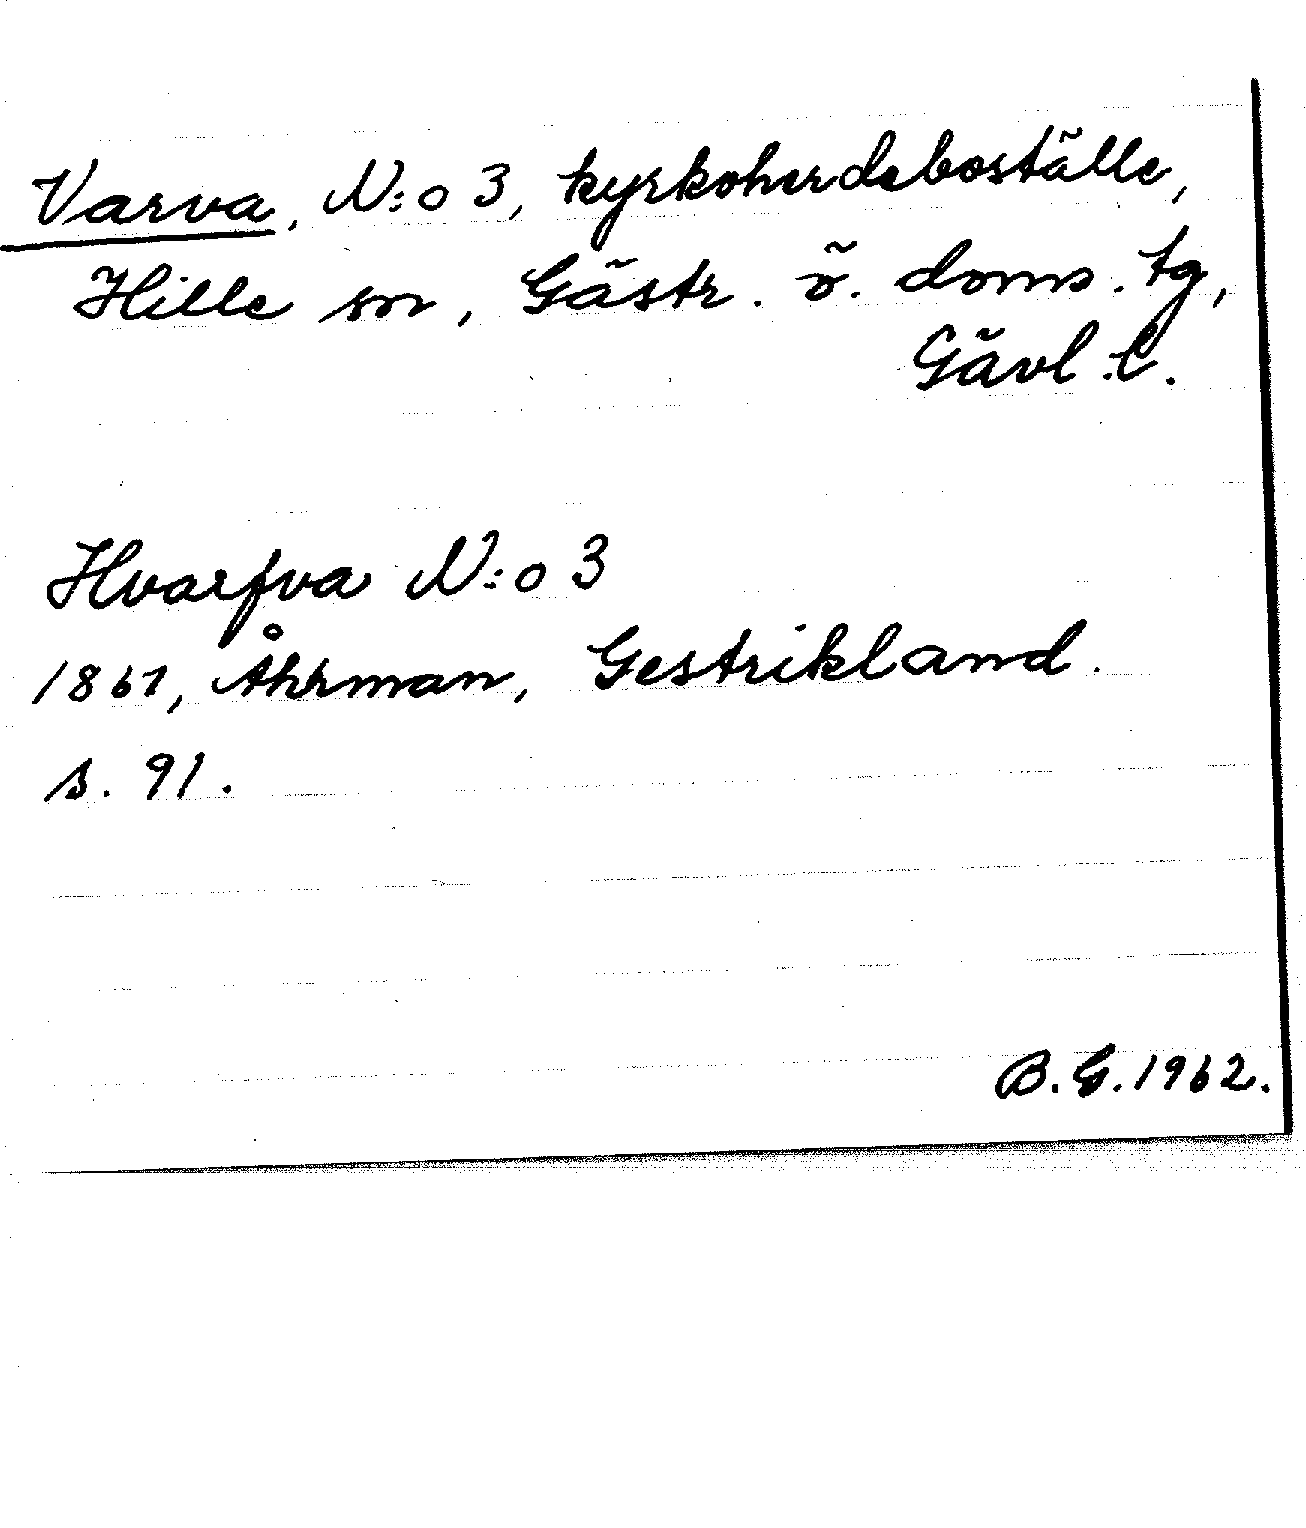 Varva, N:o 3, kyrkoherdeboställe,
Hille sn, Gästr. ö. doms. tg,
Gävl. l.
Hvarfva N:o 3
1861, Åhrman, Gestrikland.
s. 91.
B. G. 1962.